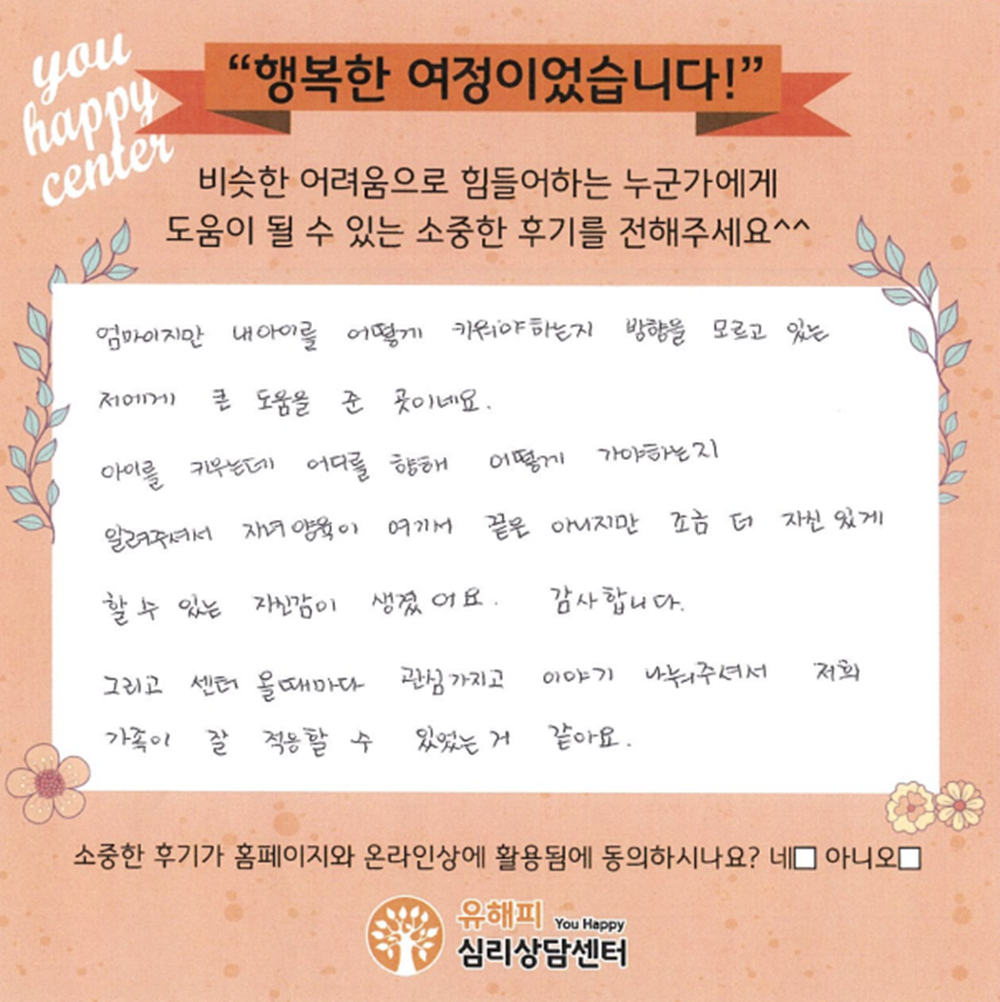 you
happy
center
“행복한 여정이었습니다!”
비슷한 어려움으로 힘들어하는 누군가에게
도움이 될 수 있는 소중한 후기를 전해주세요^^
엄마이지만 내아이를 어떻게 키워야하는지 방향을 모르고 있는
저에게 큰 도움을 준 곳이네요.
아이를 키우는데 어디를 향해 어떻게 가야하는지
알려주셔서 자녀양육이 여기서 끝은 아니지만 조금 더 자신있게
할 수 있는 자신감이 생겼어요. 감사합니다.
그리고 센터 올때마다 관심가지고 이야기 나눠주셔서 저희
가족이 잘 적응할 수 있었는거 같아요.
소중한 후기가 홈페이지와 온라인상에 활용됨에 동의하시나요? 네□ 아니오□
유해피 You Happy
심리상담센터